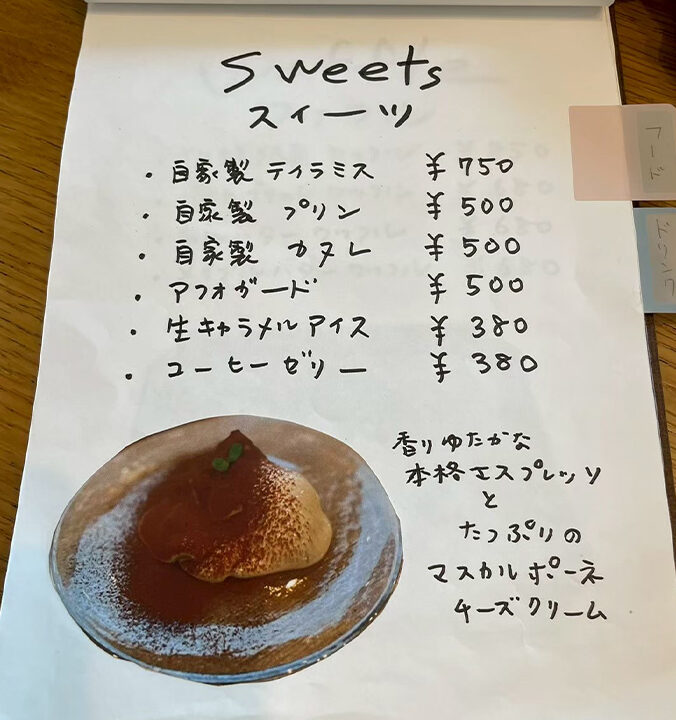 Sweets
スイーツ
・自家製 ティラミス ¥750
・自家製 プリン ¥500
・自家製 カヌレ ¥500
・アフォガード ¥500
・生キャラメルアイス ¥380
・コーヒーゼリー ¥380
香りゆたかな
本格エスプレッソ
と
たっぷりの
マスカルポーネ
チーズクリーム
フード
ドリンク